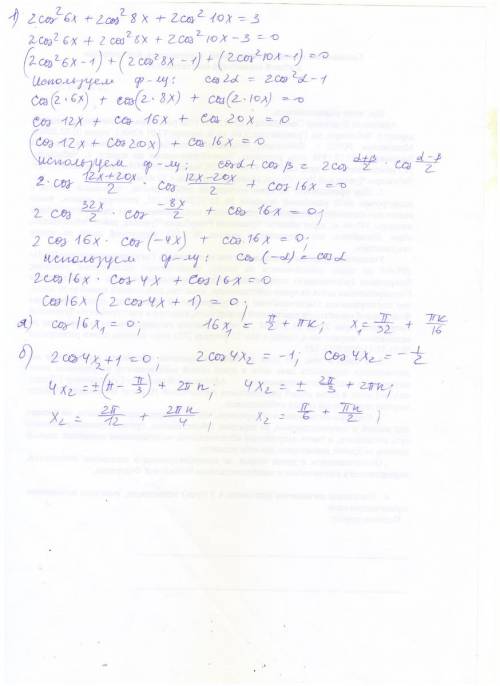 1) 2cos²6x + 2cos²8x + 2cos²10x = 3
2cos²6x + 2cos²8x + 2cos²10x - 3 = 0
(2cos²6x - 1) + (2cos²8x - 1) + (2cos²10x - 1) = 0
Используем ф-лу: cos2α = 2cos²α - 1
cos(2·6x) + cos(2·8x) + cos(2·10x) = 0
cos 12x + cos 16x + cos 20x = 0
(cos 12x + cos 20x) + cos 16x = 0
используем ф-лу: cosα + cosβ = 2cos (α+β)/2 · cos (α-β)/2
2·cos (12x+20x)/2 · cos (12x-20x)/2 + cos 16x = 0
2 cos 32x/2 · cos -8x/2 + cos 16x = 0;
2 cos 16x · cos(-4x) + cos 16x = 0;
используем ф-лу: cos(-α) = cosα
2cos16x · cos 4x + cos 16x = 0
cos16x (2 cos4x + 1) = 0;
а) cos 16x₁ = 0; 16x₁ = π/2 + πk; x₁ = π/32 + πk/16
б) 2cos4x₂ + 1 = 0; 2cos4x₂ = -1; cos 4x₂ = -1/2
4x₂ = ±(π - π/3) + 2πn; 4x₂ = ± 2π/3 + 2πn;
x₂ = 2π/12 + 2πn/4; x₂ = π/6 + πn/2;